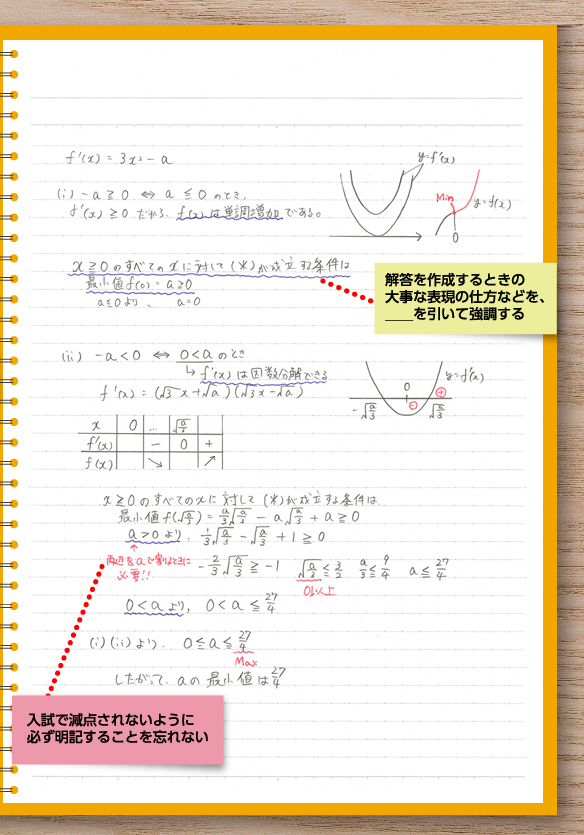 f'(x) = 3x² - a
y=f'(x)
(i) -a≧0 ⇔ a ≦ 0 のとき,
f'(x) ≧ 0 だから、f(x)は単調増加である。
Min
y=f(x)
0
x≧0のすべてのxに対して(*)が成立する条件は
最小値f(0) = a≧0
a≦0より、 a=0
解答を作成するときの
大事な表現の仕方などを、
____を引いて強調する
(ii) -a<0 ⇔ 0<aのとき
↳ f'(x)は因数分解できる
f'(x) = (√3x+√a)(√3x-√a)
y=f'(x)
0
-√a/3 ⊖ √a/3 ⊕
x 0 … √a/3
f'(x) - 0 +
f(x) ↘ ↗
x≧0のすべてのxに対して(*)が成立する条件は
最小値f(√a/3) = a/3√a/3 - a√a/3 + a ≧ 0
a>0より、1/3√a/3 - √a/3 + 1 ≧ 0
両辺をaで割るときに
必要!!
-2/3√a/3 ≧ -1 √a/3 ≦ 3/2 a/3 ≦ 9/4 a ≦ 27/4
0以上
0<aより, 0<a≦27/4
(i)(ii)より、0≦a≦27/4
Max
したがって、aの最小値は27/4
入試で減点されないように
必ず明記することを忘れない